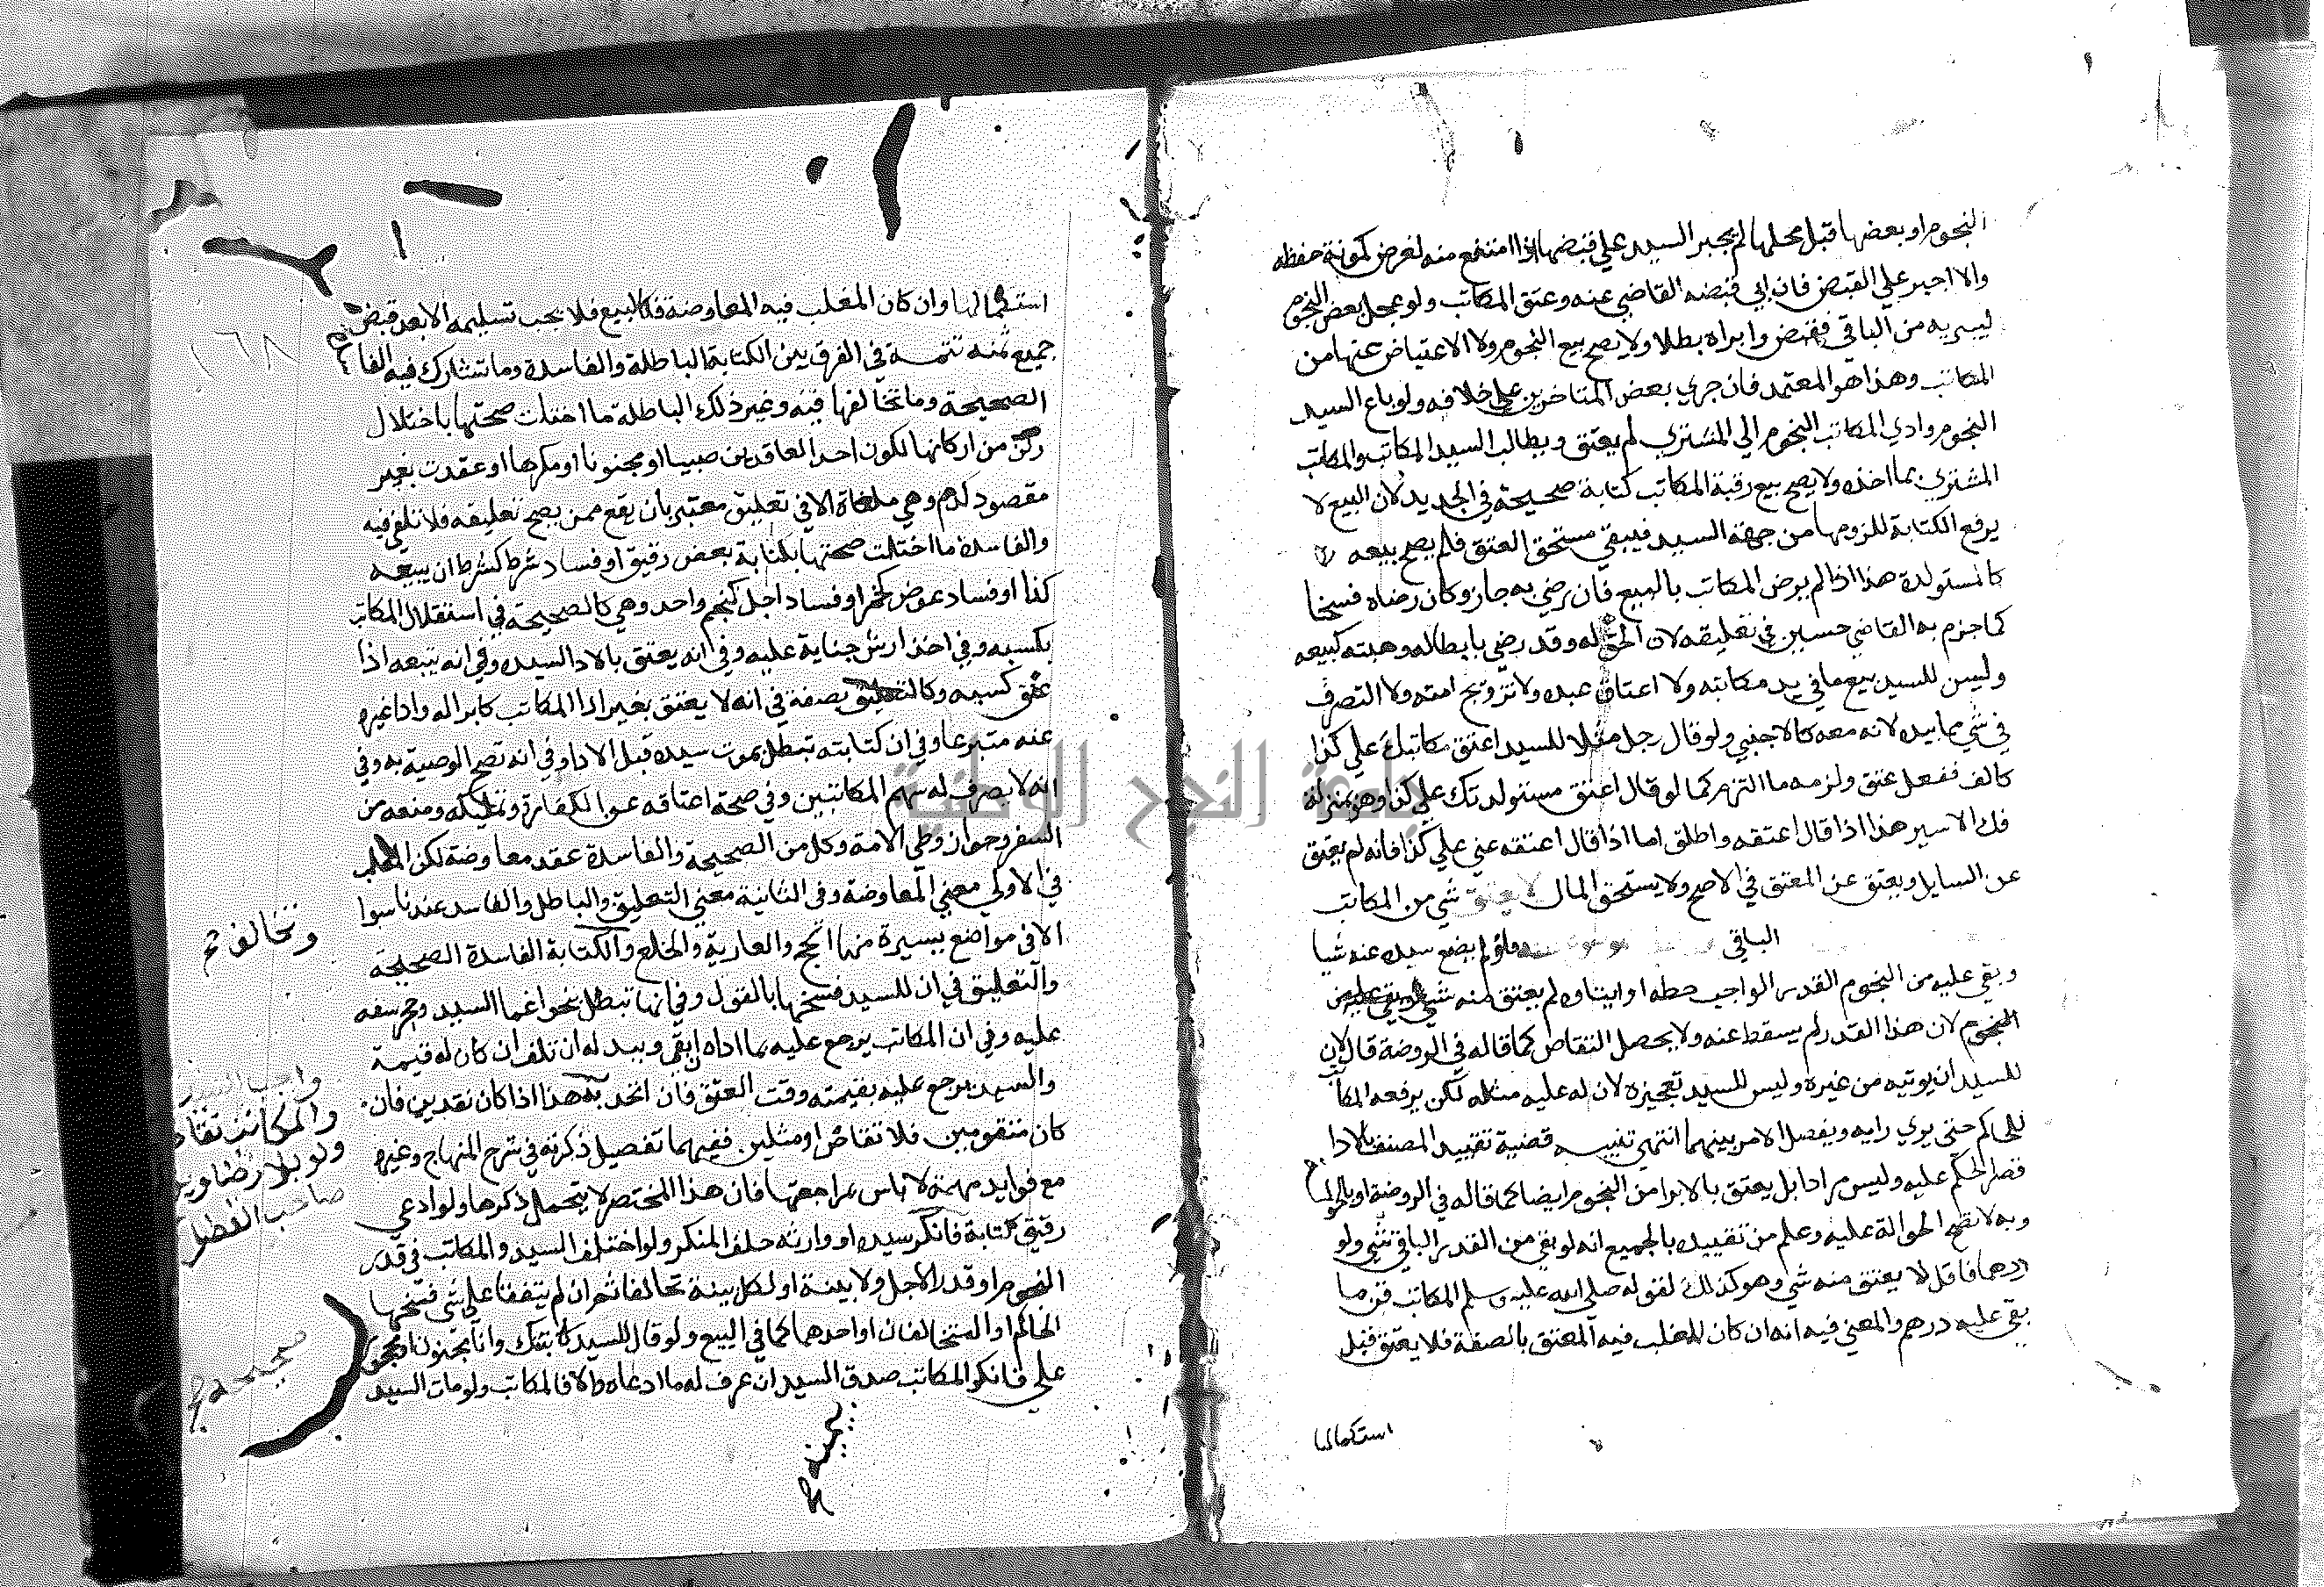 النجوم او بعضها قبل محلها لم يجبر السيد علي قبضها اذا امتنع منه لغرض كمونة حفظه
والا اجبر علي القبض فان ابي قبضه القاضي عنه وعتق المكاتب ولو عجل بعض النجوم
ليبريه من الباقي فقبض وابراه بطلا ولا يصح بيع النجوم ولا الاعتياض عنها من
المكاتب وهذا هو المعتمد فان جري بعض المتاخرين علي خلافه ولو باع السيد
النجوم وادي المكاتب النجوم الي المشتري لم يعتق ويطالب السيد المكاتب والمكاتب
المشتري بما اخذه ولا يصح بيع رقبة المكاتب كتابة صحيحة في الجديد لان البيع لا
يرفع الكتابة للزومها من جهة السيد فيبقي مستحق العتق فلم يصح بيعه
كالمستولدة هذا اذا لم يرض المكاتب بالبيع فان رضي به جاز وكان رضاه فسخا
كما جزم به القاضي حسين في تعليقه لان الحق له وقد رضي بابطاله وهبته كبيعه
وليس للسيد بيع ما في يد مكاتبه ولا اعتاق عبده ولا تزويج امته ولا التصرف
في شي مما بيده لانه معه كالاجنبي ولو قال رجل مثلا للسيد اعتق مكاتبك علي كذا
كالف ففعل عتق ولزمه ما التزم كما لو قال اعتق مستولدتك علي كذا وهو بمنزلة
فك الاسير هذا اذا قال اعتقه واطلق اما اذا قال اعتقه عني علي كذا فانه لم يعتق
عن السايل ويعتق عن المعتق في الاصح ولا يستحق المال لا يعتق شي من المكاتب
الباقي فلو لم يضع سيده عنه شيا
وبقي عليه من النجوم القدر الواجب حطه او ايتاوه لم يعتق منه شي
النجوم لان هذا القدر لم يسقط عنه ولا يحصل التقاص كما قاله في الروضة قال لان
للسيد ان يوتيه من غيره وليس للسيد تعجيزه لان له عليه مثله لكن يرفعه المكاتب
للحاكم حتى يري رايه ويفصل الامر بينهما انتهي تنبيه قضية تقييد المصنف بالادا
قصر الحكم عليه وليس مرادا بل يعتق بالابرا من النجوم ايضا كما قاله في الروضة او بالحوالة
وبه لا تصح الحوالة عليه وعلم من تقييده بالجميع انه لو بقي من القدر الباقي شي ولو
درهما فاقل لا يعتق منه شي وهو كذلك لقوله صلي الله عليه وسلم المكاتب قن ما
بقي عليه درهم والمعني فيه انه ان كان المغلب فيه العتق بالصفة فلا يعتق قبل
استكمالها
استكمالها وان كان المغلب فيه المعاوضة فكالبيع فلا يجب تسليمه الا بعد قبض
جميع ثمنه تتمة في الفرق بين الكتابة الباطلة والفاسدة وما تتشارك فيه الفا
الصحيحة وما تخالفها فيه وغير ذلك الباطلة ما اختلت صحتها باختلال
ركن من اركانها لكون احد العاقدين صبيا او مجنونا او مكرها او عقدت بغير
مقصود كدم وهي ملغاة الا في تعليق معتبر بان يقع ممن يصح تعليقه فلا تلغي فيه
والفاسدة ما اختلت صحتها بكتابة بعض رقيق او فساد شرط كشرط ان يبيعه
كذا او فساد عوض كخمر او فساد اجل كنجم واحد وهي كالصحيحة في استقلال المكاتب
بكسبه وفي اخذ ارش جناية عليه وفي انه يعتق بالاد السيده وفي انه يتبعه اذا
عتق كسبه وكالتعليق بصفة في انه لا يعتق بغير ادا المكاتب كابرا له وادا غيره
عنه متبرعا وفي ان كتابته تبطل بموت سيده قبل الادا وفي انه تصح الوصية به وفي
انه لا يصرف له سهم المكاتبين وفي صحة اعتاقه عن الكفارة وتمليكه ومنعه من
السفر وجواز وطي الامة وكل من الصحيحة والفاسدة عقد معاوضة لكن المغلب
في الاولي معني المعاوضة وفي الثانية معني التعليق والباطل والفاسد عندنا سوا
الا في مواضع يسيرة منها الحج والعارية والخلع والكتابة الفاسدة الصحيحة
وتخالف صح
والتعليق في ان للسيد فسخها بالقول وفي انها تبطل بنحو اغما السيد وحجر سفه
عليه وفي ان المكاتب يرجع عليه بما اداه ان بقي وببدله ان تلف ان كان له قيمة
والسيد يرجع عليه بقيمته وقت العتق فان اتحد هذا اذا كان نقدين فان
كان متقومين فلا تقاص او مثلين ففيهما تفصيل ذكرته في شرح المنهاج وغيره
مع فوايد مهمة لا باس بمراجعتها فان هذا المختصر لا يحتمل ذكرها ولو ادعي
رقيق كتابة فانكر سيده او وارثه حلف المنكر ولو اختلف السيد والمكاتب في قدر
النجوم او قدر الاجل ولا بينة او لكل بينة تحالفا ثم ان لم يتفقا علي شي فسخها
الحاكم او المتحالفان او احدهما كما في البيع ولو قال السيد كاتبتك وانا مجنون او محجور
علي فانكر المكاتب صدق السيد ان عرف له ما ادعاه والا فالمكاتب ولو مات السيد